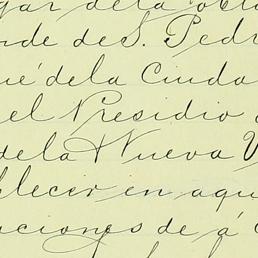 gar dela
nde de S. Pedr
ué dela Ciuda
el Presidio
dela Nueva V
blecer en aqu
aciones de á